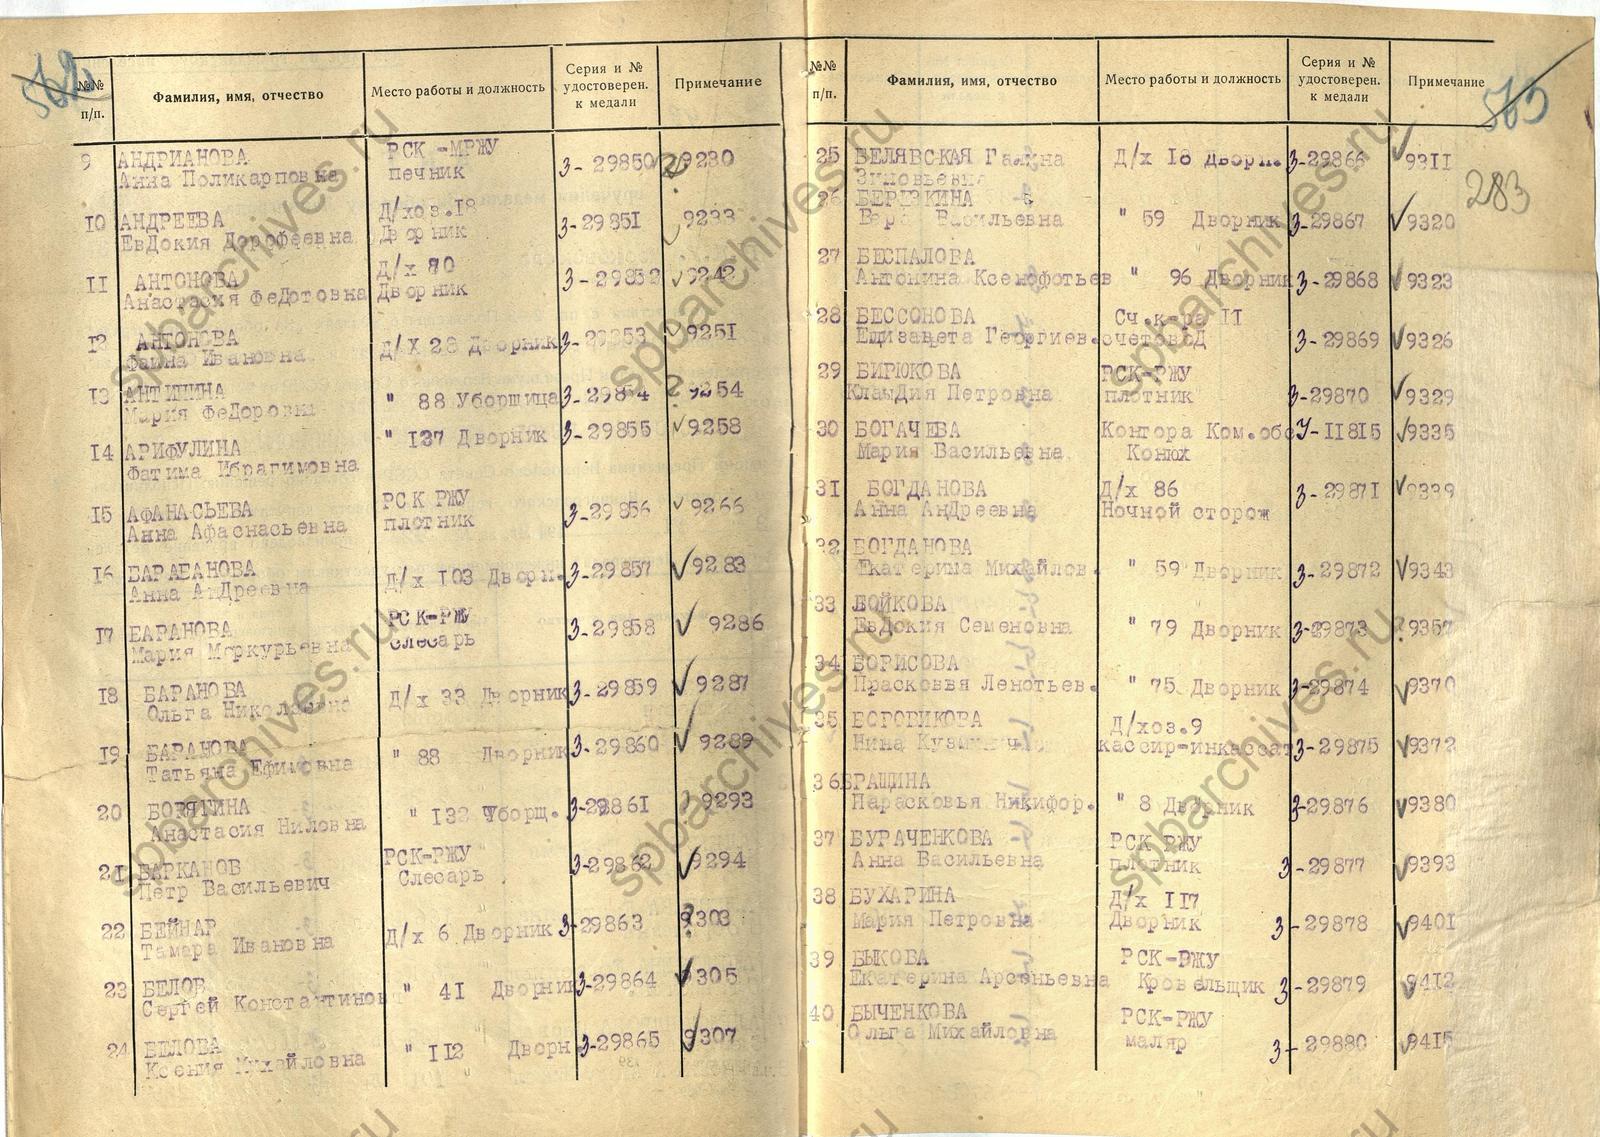 562
№№ п/п.
Фамилия, имя, отчество
Место работы и должность
Серия и № удостоверен. к медали
Примечание
9 АНДРИАНОВА РСК-МРЖУ З-29850 9230
Анна Поликарповна печник
10 АНДРЕЕВА Д/хоз.18 З-29851 9233
ЕвДокия Дорофеевна Дворник
11 АНТОНОВА Д/х 80 З-29852 9242
Анастасия ФеДотовна Дворник
12 АНТОНОВА Д/Х 28 Дворник З-29853 9251
Фаина Ивановна
13 АНТИПИНА " 88 Уборщица З-29854 9254
Мария ФеДоровна
14 АРИФУЛИНА " 137 Дворник З-29855 9258
Фатима Ибрагимовна
15 АФАНАСЬЕВА РСК РЖУ З-29856 9266
Анна Афаснасьевна плотник
16 БАРАБАНОВА Д/х 103 Дворн. З-29857 9283
Анна АнДреевна
17 БАРАНОВА РСК-РЖУ З-29858 9286
Мария Меркурьевна слесарь
18 БАРАНОВА Д/х 33 Дворник З-29859 9287
Ольга Николаевна
19 БАРАНОВА " 88 Дворник З-29860 9289
Татьяна Ефимовна
20 " 132 Уборщ. З-29861 9293
Анастасия Ниловна
21 БАРКАНОВ РСК-РЖУ З-29862 9294
Петр Васильевич Слесарь
22 БЕЙНАР Д/х 6 Дворник З-29863 9303
Тамара Ивановна
23 БЕЛОВ " 41 Дворник З-29864 9305
Сергей Константинов
24 БЕЛОВА " 112 Дворн. З-29865 9307
Ксения Михайловна
№№ п/п.
Фамилия, имя, отчество
Место работы и должность
Серия и № удостоверен. к медали
Примечание
563
283
25 БЕЛЯВСКАЯ Галина Д/х 18 Дворн. З-29866 9311
Зиновьевна
26 БЕРЕЗКИНА
Вера Васильевна " 59 Дворник З-29867 9320
27 БЕСПАЛОВА
Антонина Ксенофотьев " 96 Дворник З-29868 9323
28 БЕССОНОВА Сч.к-ра 11
Елизавета Георгиев. счетовоД З-29869 9326
29 БИРЮКОВА РСК-РЖУ
КлавДия Петровна плотник З-29870 9329
30 БОГАЧЕВА Контора Ком.обс У-11815 9335
Мария Васильевна Конюх
31 БОГДАНОВА Д/х 86 З-29871 9339
Анна АнДреевна Ночной сторож
32 БОГДАНОВА
Екатерина Михайлов. " 59 Дворник З-29872 9343
33 БОЙКОВА
ЕвДокия Семеновна " 79 Дворник З-29873 9357
34 БОРИСОВА
Прасковвя Леноtьев. " 75 Дворник З-29874 9370
35 Д/хоз.9
Нина кассир-инкассат З-29875 9372
36 БРАЩИНА
Парасковья Никифор. " 8 Дворник З-29876 9380
37 БУРАЧЕНКОВА РСК РЖУ
Анна Васильевна плотник З-29877 9393
38 БУХАРИНА Д/х 117
Мария Петровна Дворник З-29878 9401
39 БЫКОВА РСК-РЖУ
Екатерина Арсеньевна Кровельщик З-29879 9412
40 БЫЧЕНКОВА РСК-РЖУ
Ольга Михайловна маляр З-29880 9415
spbarchives.ru
spbarchives.ru
spbarchives.ru
spbarchives.ru
spbarchives.ru
spbarchives.ru